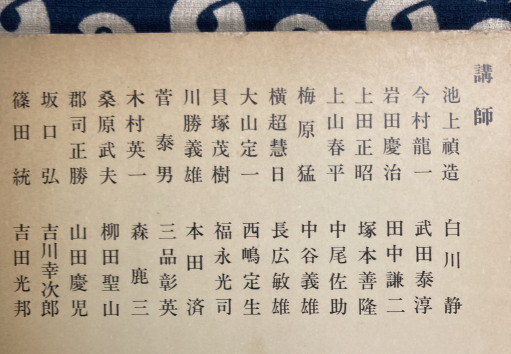 講師
池上禎造
今村龍一
岩田慶治
上田正昭
上山春平
梅原猛
横超慧日
大山定一
貝塚茂樹
川勝義雄
菅泰男
木村英一
桑原武夫
郡司正勝
坂口弘
篠田統
白川静
武田泰淳
田中謙二
塚本善隆
中尾佐助
中谷義雄
長広敏雄
西嶋定生
福永光司
本田済
三品彰英
森鹿三
柳田聖山
山田慶児
吉川幸次郎
吉田光邦